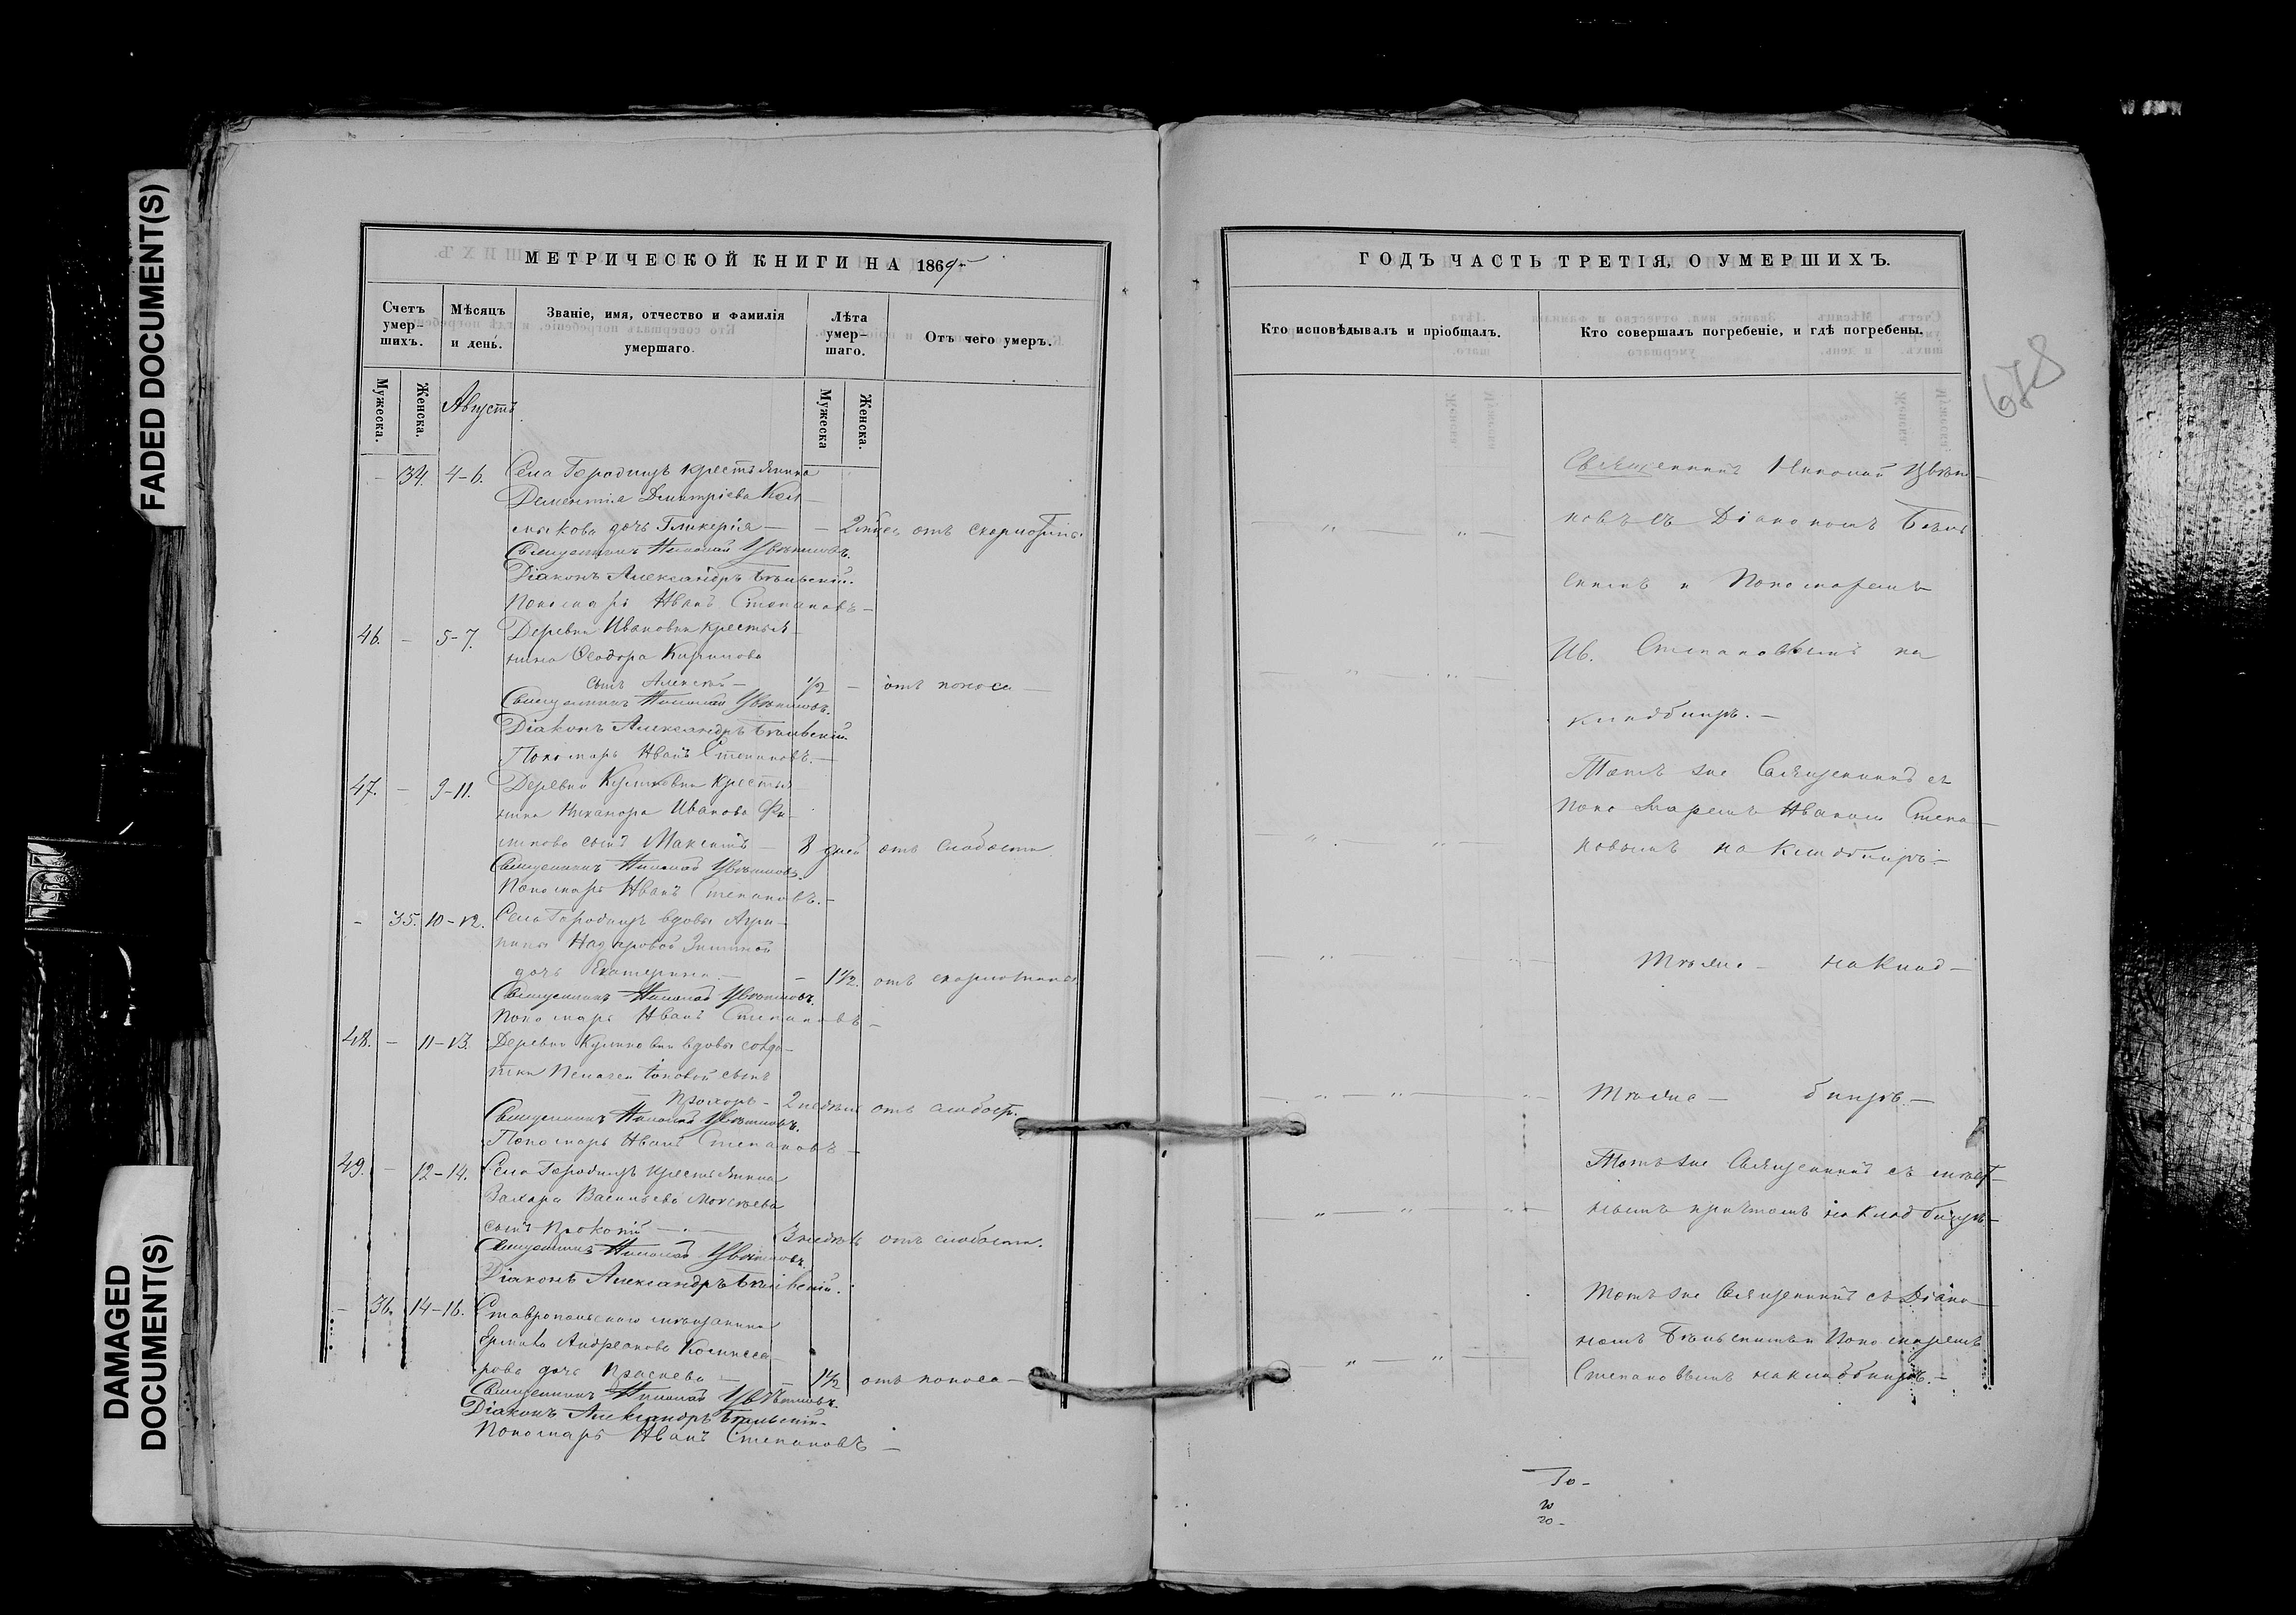 FADED DOCUMENT(S)
DAMAGED
DOCUMENT(S)
МЕТРИЧЕСКОЙ КНИГИ НА 1869
Счетъ умер-шихъ.
Мѣсяцъ и день.
Званіе, имя, отчество и фамилія умершаго.
Лѣта умер-шаго.
Отъ чего умеръ.
Мужеска.
Женска.
Августъ
Мужеска
Женска.
— 34. 4-6. Села Городищъ крестьянина
Дементія Дмитріева Кол-
мыкова дочь Гликерія — — 2 отъ скарлатины
Священникъ Николай Цвѣтковъ.
Діаконъ Александръ Бѣльскій.
Пономарь Иванъ Степановъ —
46. — 5-7. Деревни Ивановки крестья-
нина Ѳеодора
сынъ Алексѣй — 1/2 — отъ поноса —
Священникъ Николай Цвѣтковъ.
Діаконъ Александръ Бѣльскій
Пономарь Иванъ Степановъ. —
47. — 9-11. Деревни Куликовки крестья-
нина Никанора Иванова Фи-
липова сынъ Максимъ — 8 дней отъ слабости
Священникъ Николай Цвѣтковъ.
Пономарь Иванъ Степановъ. —
— 35. 10-12. Села Городищъ вдовы Агри-
пины Назаровой
дочь Екатерина. — — 1 1/2. отъ скарлатины
Священникъ Николай Цвѣтковъ.
Пономарь Иванъ Степановъ —
48. — 11-13. Деревни Куликовки вдовы солда-
тки Пелагеи сынъ
— Прохоръ — 2 недѣли отъ слабост.
Священникъ Николай Цвѣтковъ.
Пономарь Иванъ Степановъ —
49. — 12-14. Села Городищъ крестьянина
Захара Васильева
сынъ Прокопій — 3 недѣль отъ слабости.
Священникъ Николай Цвѣтковъ.
Діаконъ Александръ Бѣльскій.
— 36. 14-16. Ставропольскаго мѣщанина
Ермила Андреянова Комисса-
рова дочь Праскева — 1 1/2 отъ поноса —
Священникъ Николай Цвѣтковъ.
Діаконъ Александръ Бѣльскій.
Пономарь Иванъ Степановъ —
ГОДЪ ЧАСТЬ ТРЕТІЯ, О УМЕРШИХЪ.
Кто исповѣдывалъ и пріобщалъ.
Кто совершалъ погребеніе, и гдѣ погребены.
678
Священникъ Николай Цвѣт-
ковъ съ Діакономъ Бѣль
скимъ и Пономаремъ
Ив. Степановымъ на
кладбищѣ. —
Тотъ же Священникъ съ
Пономаремъ Иваномъ Степа-
новымъ на кладбищѣ. —
Тѣ же — на клад —
Тѣ же — бищѣ. —
Тотъ же Священникъ съ мѣст-
нымъ причтомъ на кладбищѣ —
Тотъ же Священникъ съ Діако-
номъ Бѣльскимъ и Пономаремъ
Степановымъ на кладбищѣ. —